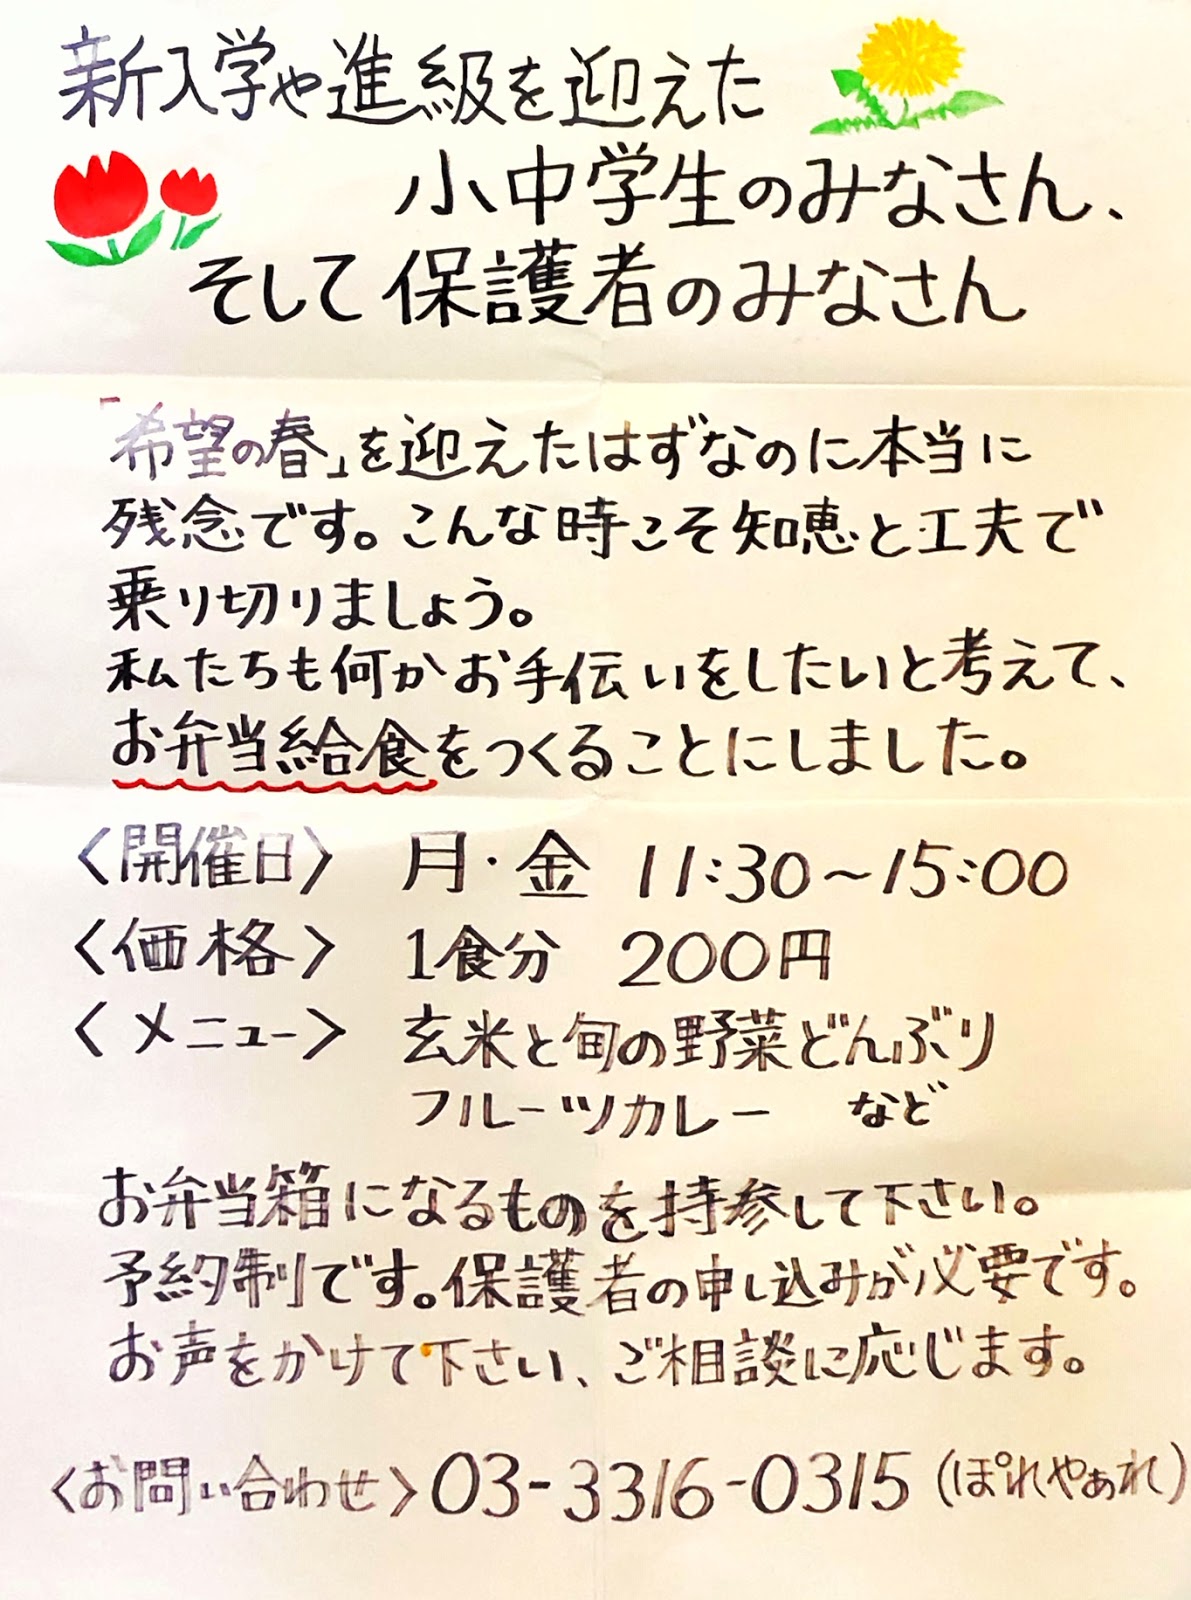 新入学や進級を迎えた
小中学生のみなさん、
そして保護者のみなさん
「希望の春」を迎えたはずなのに本当に
残念です。こんな時こそ知恵と工夫で
乗り切りましょう。
私たちも何かお手伝いをしたいと考えて、
お弁当給食をつくることにしました。
〈開催日〉 月・金 11:30～15:00
〈価格〉 1食分 200円
〈メニュー〉 玄米と旬の野菜どんぶり
フルーツカレー など
お弁当箱になるものを持参して下さい。
予約制です。保護者の申し込みが必要です。
お声をかけて下さい、ご相談に応じます。
〈お問い合わせ〉03-3316-0315(ぽれやぁれ)